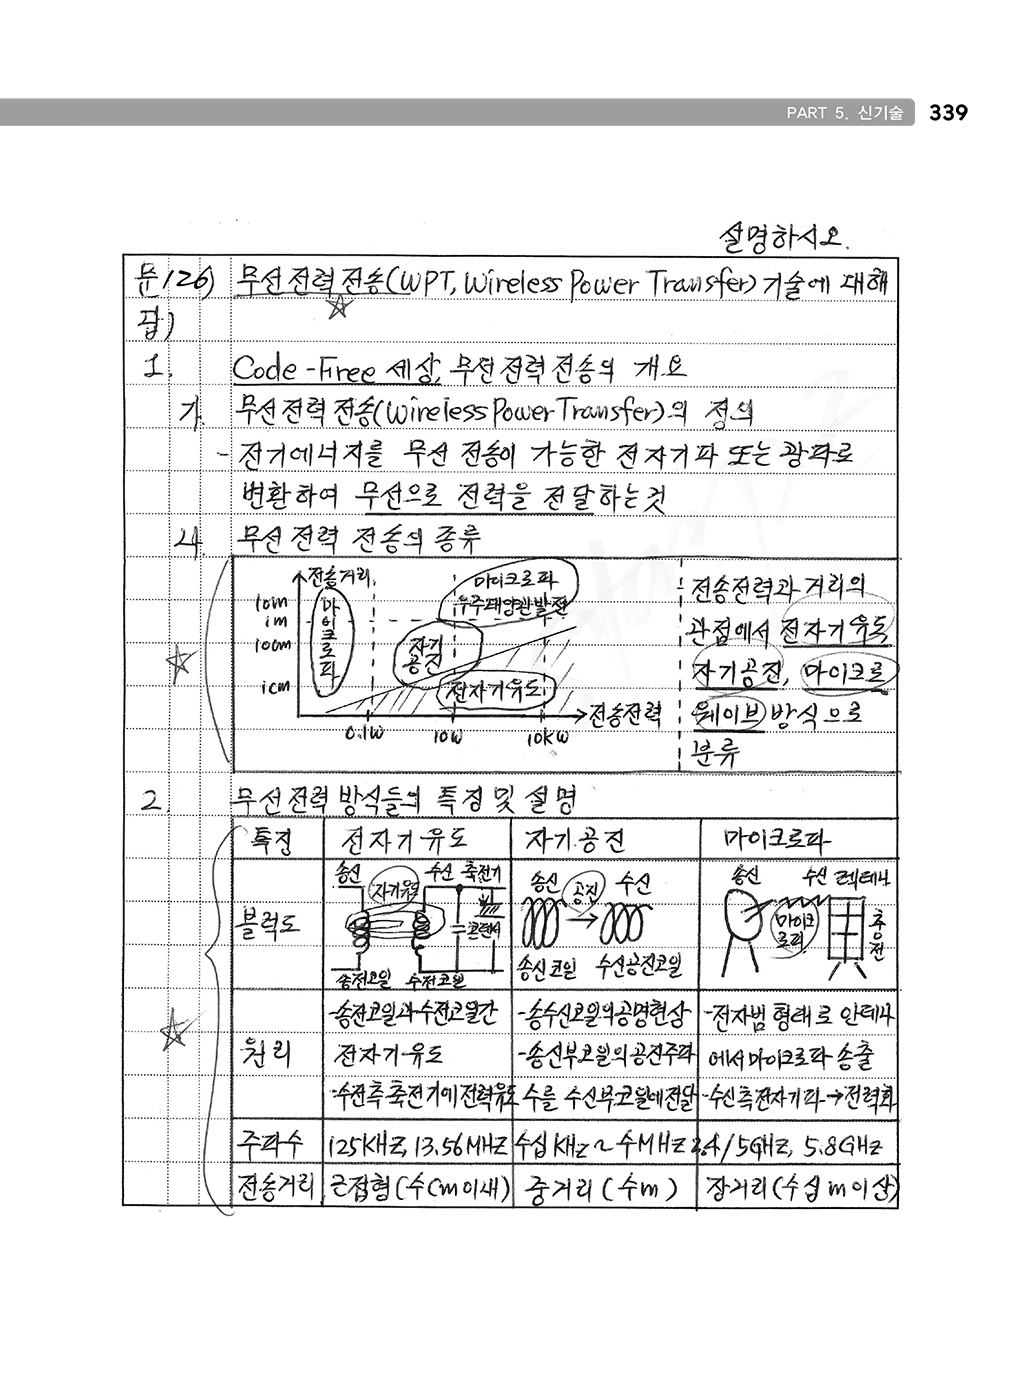 PART 5. 신기술 339
설명하시오.
문126) 무선 전력 전송(WPT, Wireless Power Transfer) 기술에 대해
답)
1. Code-Free 세상, 무선 전력 전송의 개요
가. 무선 전력 전송(Wireless Power Transfer)의 정의
- 전기에너지를 무선 전송이 가능한 전자기파 또는 광파로
변환하여 무선으로 전력을 전달하는것
나. 무선 전력 전송의 종류
전송거리
10m
1m
100m
1cm
마이크로파
마이크로파
우주태양관발전
자기
공진
전자기유도
전송전력
0.1W 10W 10KW
- 전송전력과 거리의
관점에서 전자기유도
자기공진, 마이크로
웨이브 방식으로
분류
2. 무선 전력 방식들의 특징 및 설명
특징 전자기유도 자기공진 마이크로파
블럭도
송신 자기유도 수신 축전기
콘덴서
송전코일 수전코일
송신 공진 수신
송신코일 수신공진코일
송신 수신 렉테나
마이크
로파
축전
원리
-송전코일과 수전코일간
전자기유도
-수전측 축전기에 전력유도
-송수신코일의 공명현상
-송신부코일의 공진주파
수를 수신부코일에 전달
-전자범 형태로 안테나
에서 마이크로파 송출
-수신측 전자기파→전력화
주파수 125KHz, 13.56MHz 수십KHz ~ 수MHz 2.4/5GHz, 5.8GHz
전송거리 근접형(수Cm이내) 중거리(수m) 장거리(수십m이상)